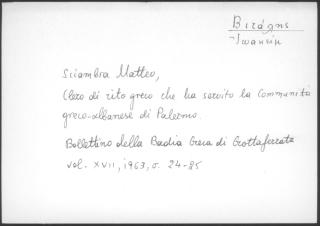 Sciambra Matteo,
Clero di rito greco che ha servito la Comunità
greco-albanese di Palermo.
Bollettino della Badia Greca di Grottaferrata
vol. XVII, 1963, σ. 24-85